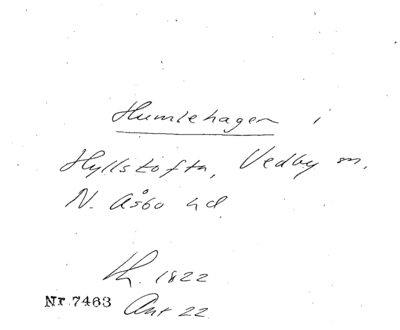 Humlehagen i
Hyllstofta, Vedby sn,
N. Åsbo hd
Lh. 1822
Nr 7463 Akt 22